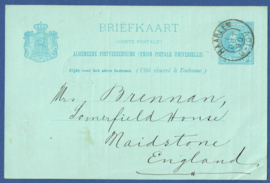 BRIEFKAART
(CARTE POSTALE)
ALGEMEENE POSTVEREENIGING (UNION POSTALE UNIVERSELLE)
Zijde voor het adres bestemd. (Côté réservé à l'adresse.)
HAARLEM
Mrs Brennan,
Somerfield House
Maidstone
England